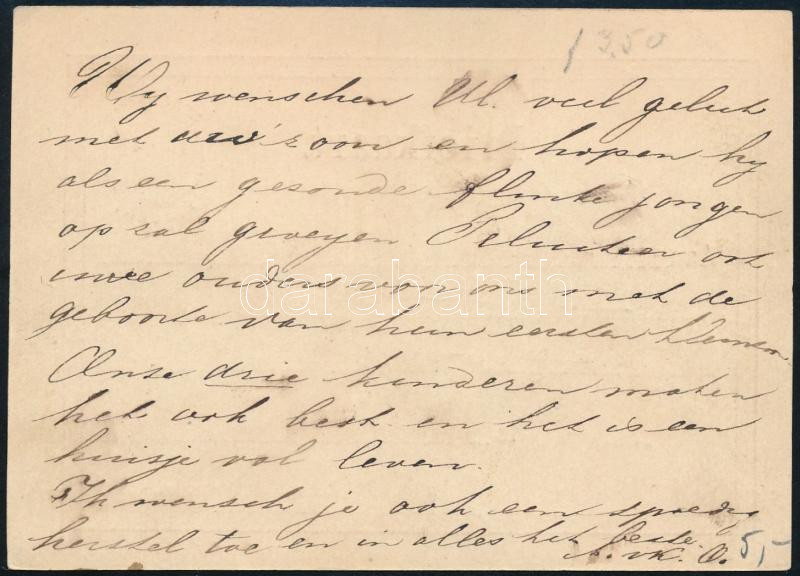 / 3,50
Wy wenschen Ul. veel geluk
met uw zoon en hopen hy
als een gezonde flinke jongen
op zal groeyen. Feliciteer ook
uwe ouders voor ons met de
geboorte van hun eersten kleinzoon.
Onze drie kinderen maken
het ook best en het is een
huisje vol leven.
Ik wensch je ook een spoedig
herstel toe en in alles het beste.
v.K. O. 5,-
darabanth